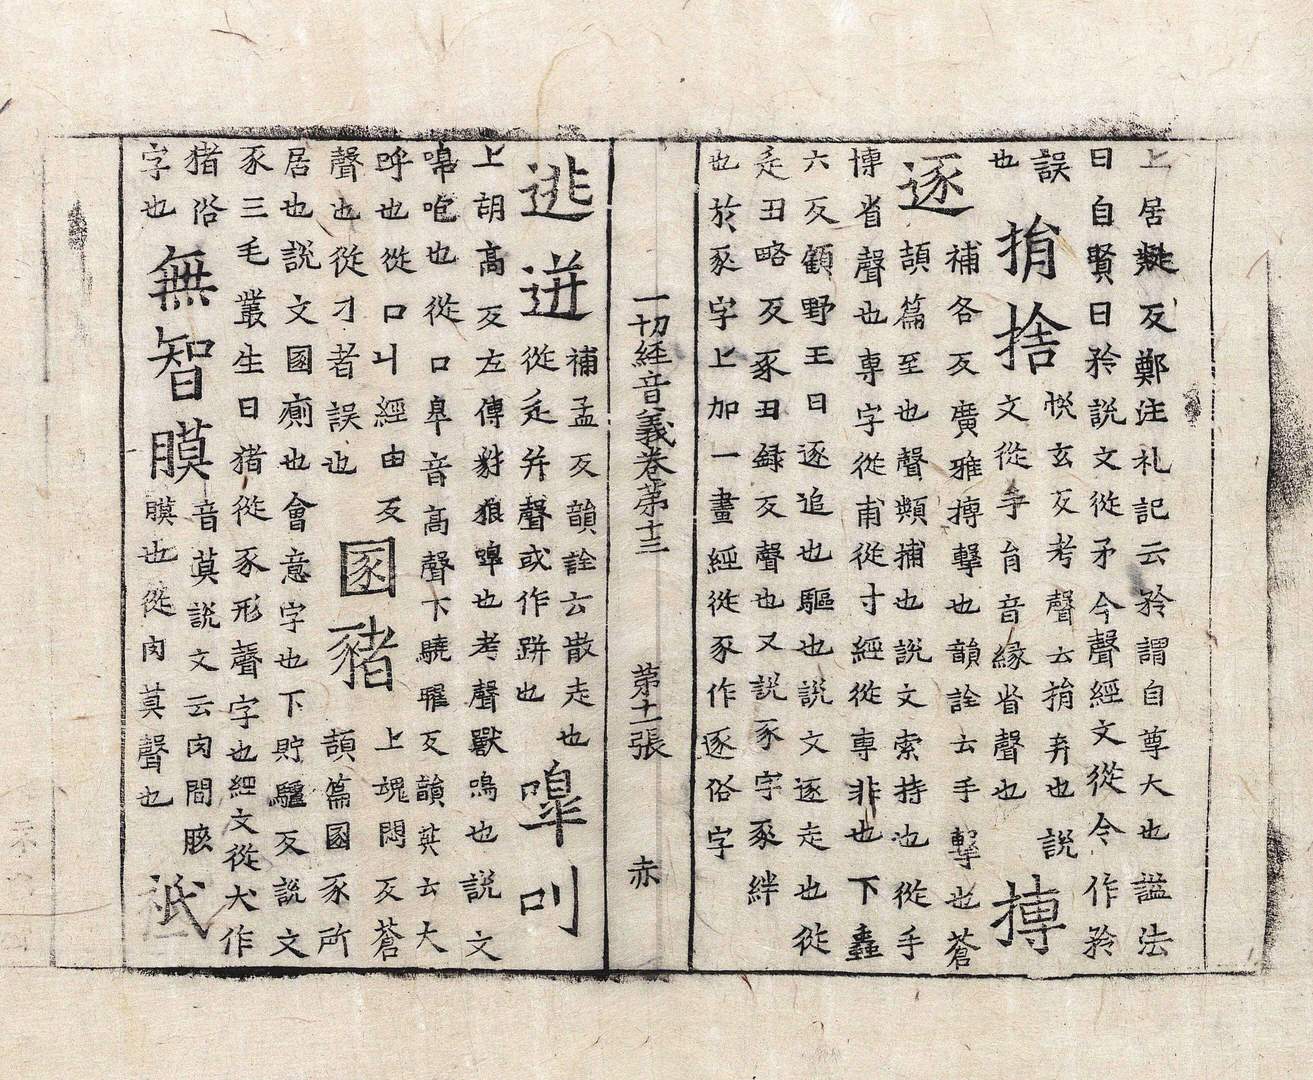 上居㷡反鄭注礼記云矜謂自尊大也謚法
曰自賢曰矜說文從矛今聲經文從令作矜
誤
也
捐捨
悅玄反考聲云捐弃也說
文從手肙音緣省聲也
搏
補各反廣雅搏擊也韻詮云手擊也蒼
頡篇至也聲類捕也說文索持也從手
博省聲也専字從甫從寸經從專非也下䖵
逐
六反顧野王曰逐追也驅也說文逐走也從
辵丑略反豖丑録反聲也又說豖字豕絆
也於豕字上加一畫經從豕作逐俗字
一切經音義卷第十三 第十一張 赤
逃迸
補孟反韻詮云散走也
從辵并聲或作跰也
嘷叫
上胡高反左傳豺狼嘷也考聲獸鳴也說文
嘷咆也從口皐音高聲下驍曜反韻英云大
呼也從口丩經由反
聲也從刁者誤也
圂豬
上魂悶反蒼
頡篇圂豕所
居也說文圂廁也會意字也下貯驢反說文
豕三毛叢生曰猪從豕形聲字也經文從犬作
猪俗
字也
無智膜
音莫說文云肉間胲
膜也從肉莫聲也
祇